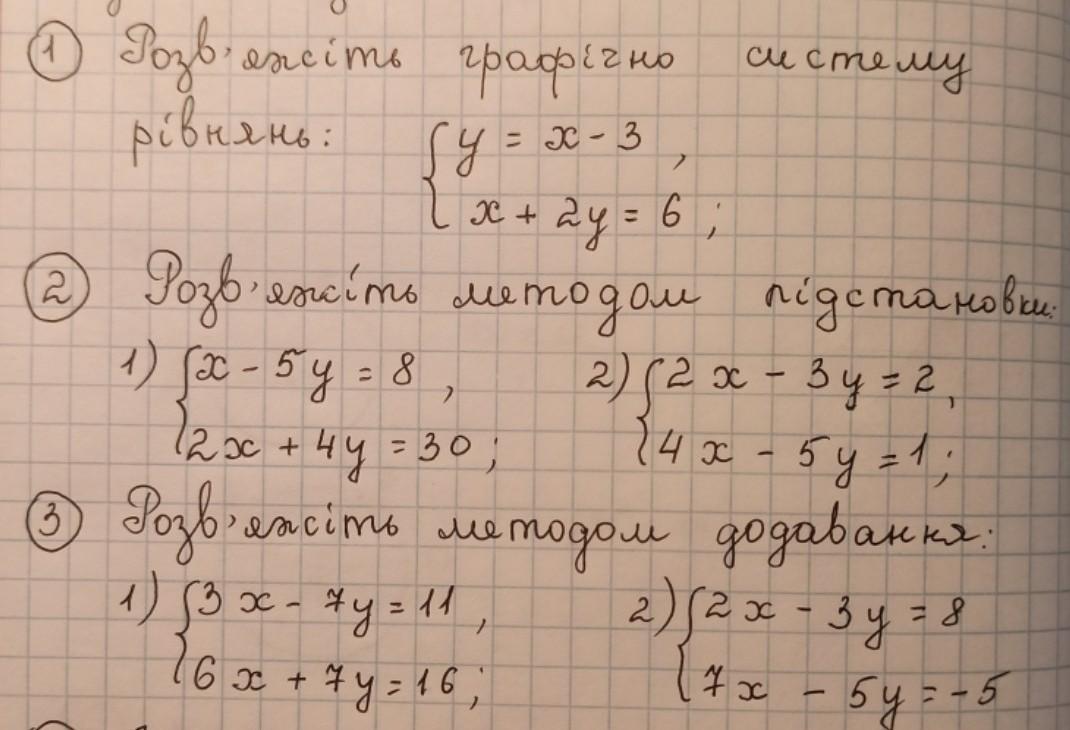 1 Розв'яжіть графічно систему
рівнянь: { y = x - 3 ,
x + 2y = 6 ;
2 Розв'яжіть методом підстановки:
1) { x - 5y = 8 , 2) { 2x - 3y = 2 ,
2x + 4y = 30 ; 4x - 5y = 1 ;
3 Розв'яжіть методом додавання:
1) { 3x - 7y = 11 , 2) { 2x - 3y = 8
6x + 7y = 16 ; 7x - 5y = -5